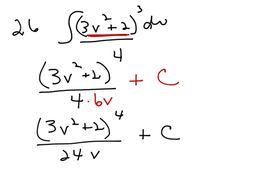 26 ∫(3v²+2)³dv
(3v²+2)⁴/(4·6v) + C
(3v²+2)⁴/(24v) + C